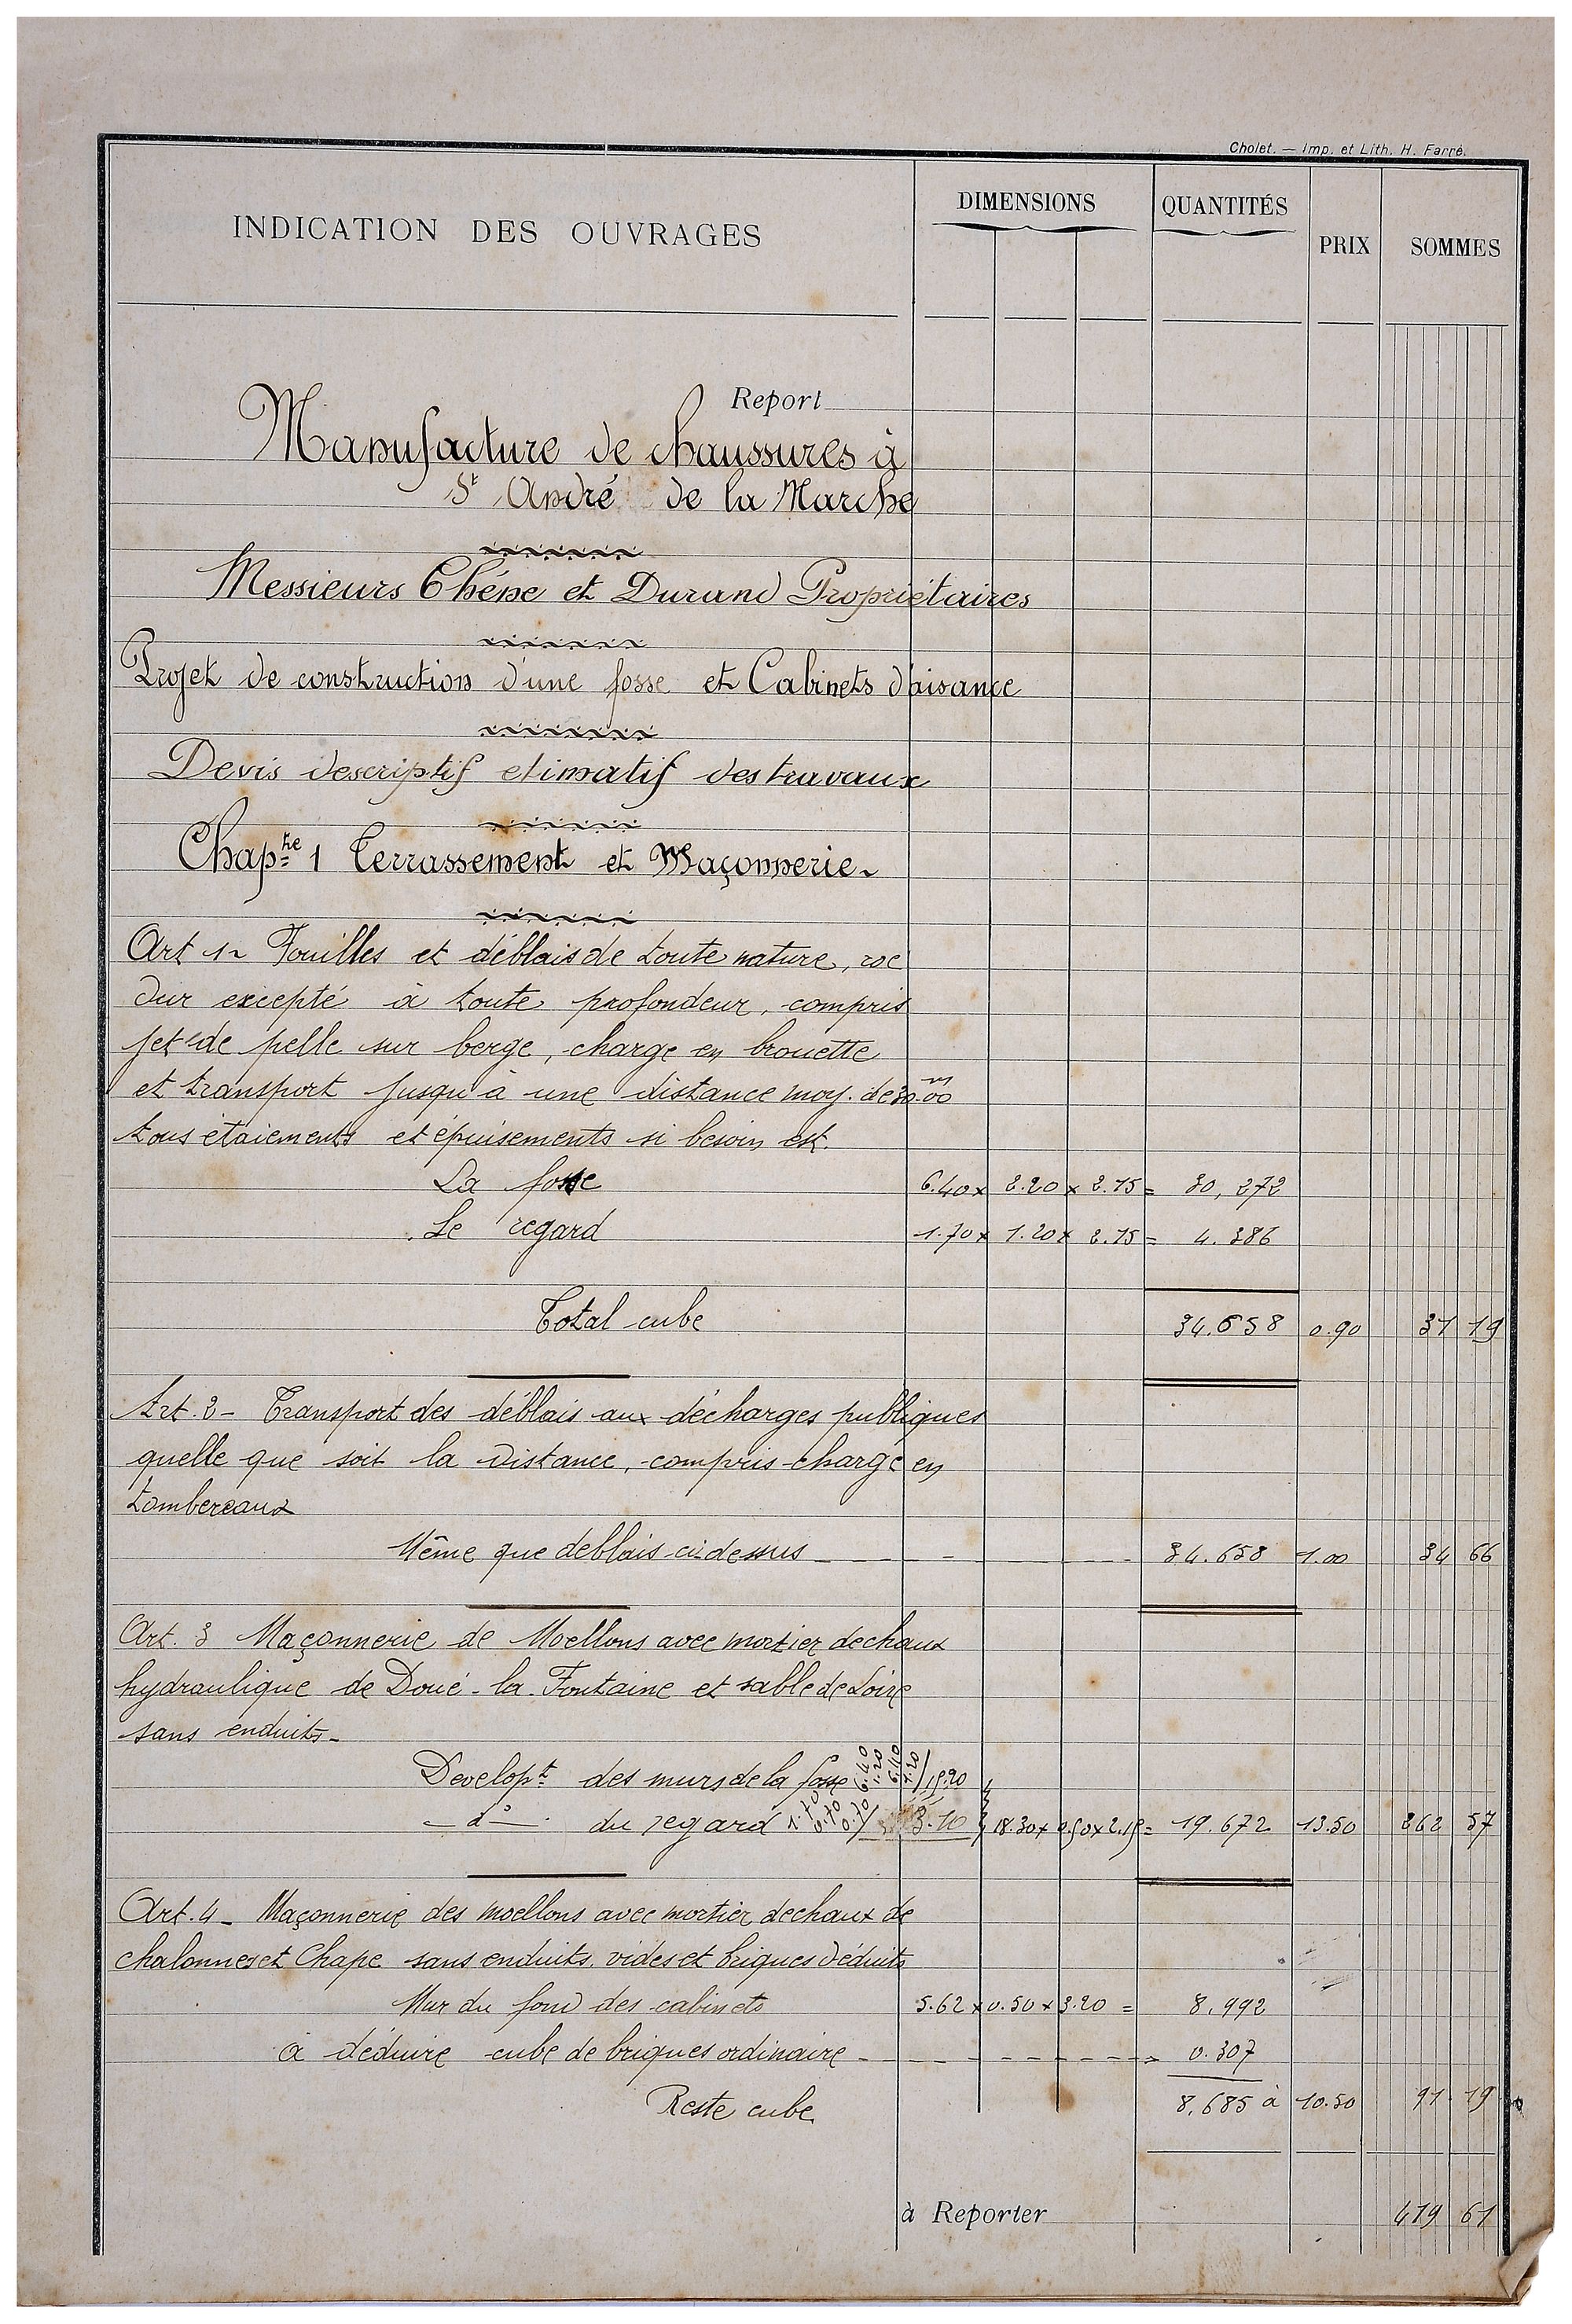 Cholet. — Imp. et Lith. H. Farré.
INDICATION DES OUVRAGES DIMENSIONS QUANTITÉS PRIX SOMMES
Report
Manufacture de chaussures à
St André de la Marche
Messieurs Chéne et Durand Propriétaires
Projet de construction d'une fosse et Cabinets d'aisance
Devis descriptif etimatif des travaux
Chaptre 1 Terrassement et Maçonnerie
Art 1 Fouilles et déblais de toute nature, roc
dur excepté à toute profondeur, compris
jet de pelle sur berge, charge en brouette
et transport jusqu'à une distance moy. de 30m.00
tous étaiements et épuisements si besoin est.
La fosse 6.40 x 2.20 x 2.15 = 30,272
Le regard 1.70 x 1.20 x 2.15 = 4.386
Total cube 34.658 0.90 31 19
Art. 2 - Transport des déblais aux décharges publiques
quelle que soit la distance, compris charge en
tombereaux
Même que deblais ci-dessus 34.658 1.00 34 66
Art. 3 Maçonnerie de Moellons avec mortier de chaux
hydraulique de Doué-la-Fontaine et sable de Loire
sans enduits-
Developt des murs de la fosse (6.40 1.20 6.40 1.20) 15.20
- do - du regard 1.70 0.70 0.70) 3.10 18.30 x 0.50 x 2.15 = 19.672 13.50 262 57
Art. 4 - Maçonnerie des moellons avec mortier de chaux de
chalonnes et Chape sans enduits, vides et briques déduits
Mur du fond des cabinets 5.62 x 0.50 x 3.20 = 8,992
à déduire cube de briques ordinaire 0.307
Reste cube 8,685 à 10.50 91 19
à Reporter 419 61